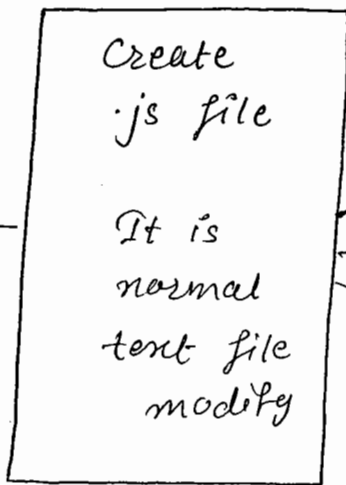 Create
.js file
It is
normal
text file
modify